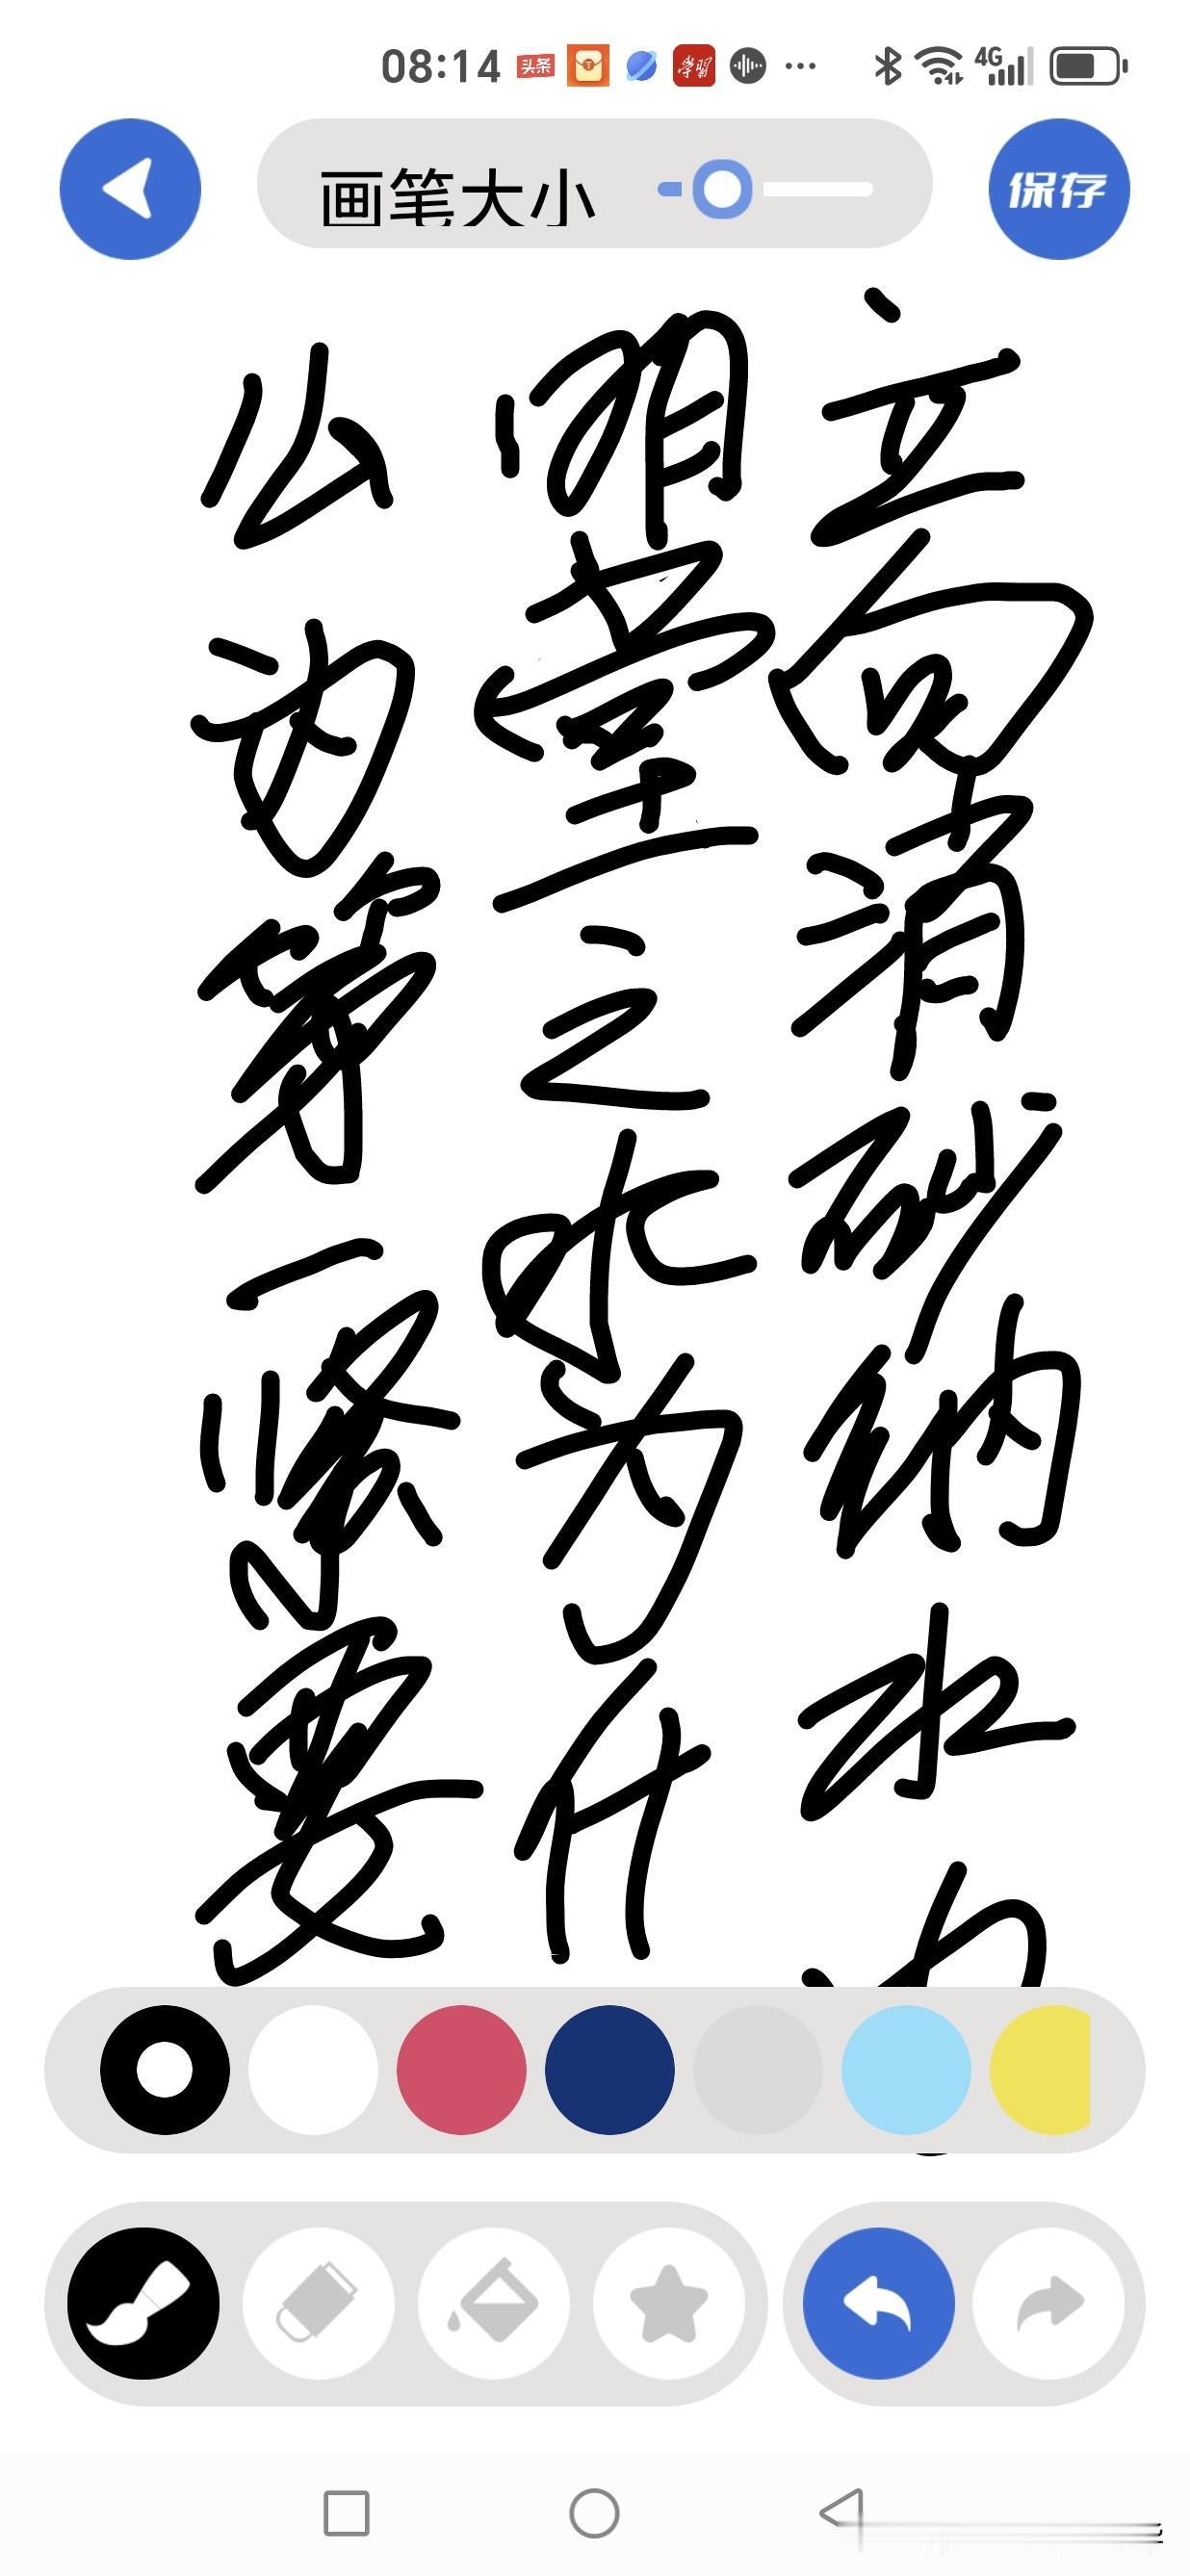 08:14 头条 学习 4G
画笔大小
保存
立向消砂纳水
明堂之水为什
么为第一紧要